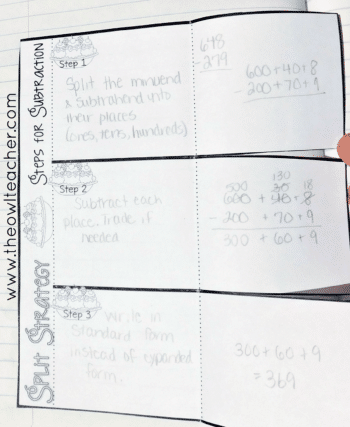 www.theowlteacher.com
SPLIT STRATEGY
STEPS FOR SUBTRACTION
Step 1
Split the minuend
& Subtrahend into
their places
(ones, tens, hundreds)
648
-279
600+40+8
- 200+70+9
Step 2
Subtract each
place. Trade if
needed
130
500 30 18
600 + 40 + 8
- 200 + 70 + 9
300 + 60 + 9
Step 3
Write in
Standard form
instead of expanded
form.
300+60+9
= 369